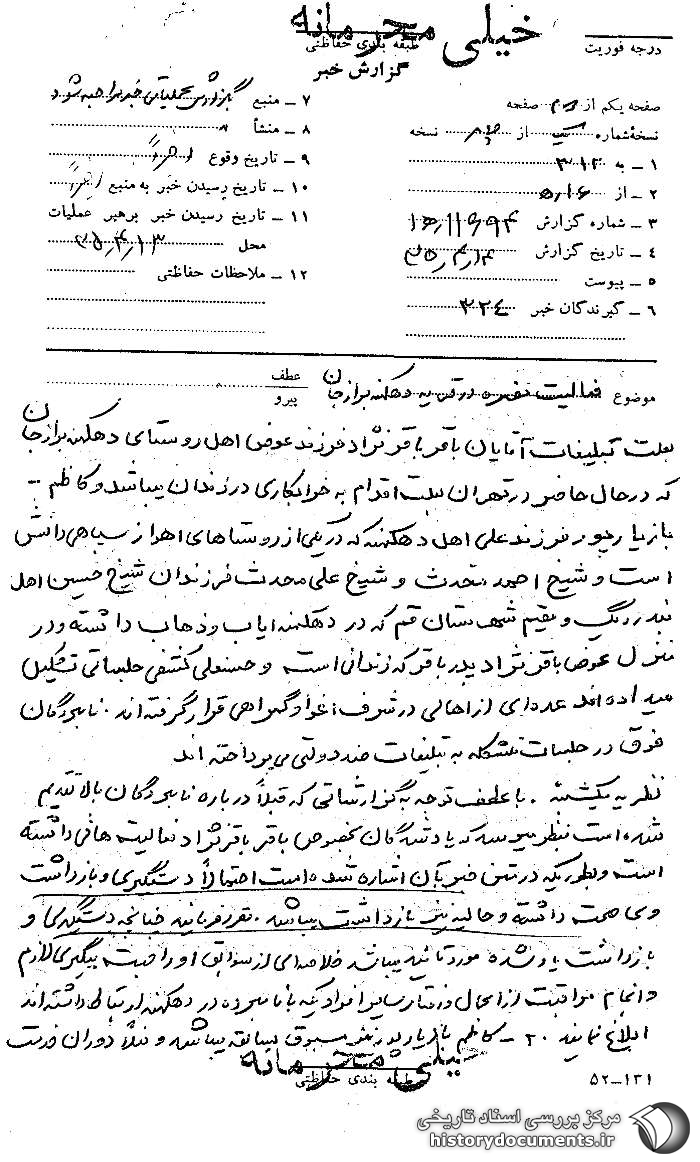 خیلی محرمانه
درجه فوریت
طبقه بندی حفاظتی
گزارش خبر
صفحه یکم از دوم صفحه
نسخه شماره یک از چهار نسخه
۱ ـ به ۳۱۲
۲ ـ از ۵،۱۶
۳ ـ شماره گزارش ۱۵،۱۱۶۹۴
۴ ـ تاریخ گزارش ۳۵،۴،۱۴
۵ ـ پیوست
۶ ـ گیرندگان خبر ۳۲۴
۷ ـ منبع بگزارش عملیاتی خبر مراجعه شود
۸ ـ منشأ
۹ ـ تاریخ وقوع اخیراً
۱۰ ـ تاریخ رسیدن خبر به منبع اخیراً
۱۱ ـ تاریخ رسیدن خبر برهبر عملیات
محل ۳۵،۴،۱۳
۱۲ ـ ملاحظات حفاظتی
موضوع فعالیت مضره در قریه دهکهنه برازجان
عطف
پیرو
بعلت تبلیغات آقایان باقر باقرنژاد فرزند عوض اهل روستای دهکهنه برازجان
که در حال حاضر در تهران بعلت اقدام به خرابکاری در زندان میباشد و کاظم ـ
بازیارپور فرزند علی اهل دهکهنه که در یکی از روستاهای اهواز سپاهی دانش
است و شیخ احمد محدث و شیخ علی محدث فرزندان شیخ حسین اهل
بندرریگ و مقیم شهرستان قم که در دهکهنه ایاب و ذهاب داشته و در
منزل عوض باقرنژاد پدر باقر که زندانی است و حسنعلی کشفی جلساتی تشکیل
میداده اند عده‌ای از اهالی در شرف اغوا و گمراهی قرار گرفته اند. نامبردگان
فوق در جلسات متشکله به تبلیغات ضد دولتی می پرداخته اند
نظریه یکشنبه. با عطف توجه به گزارشاتی که قبلاً درباره نامبردگان بالا تقدیم
شده است بنظر میرسد که یادشدگان بخصوص باقر باقرنژاد فعالیت هائی داشته
است و بطوریکه در متن خبر بآن اشاره شده است احتمالاً دستگیری و بازداشت
و محاکمه داشته و حالیه نیز بازداشت میباشد. مقرر فرمایند چنانچه دستگیری و
بازداشت یادشده مورد تائید میباشد خلاصه‌ای از سوابق او را جهت پیگیری لازم
و انجام مراقبت از اعمال و رفتار سایر افرادیکه با نامبرده در دهکهنه ارتباط داشته اند
ابلاغ نمایند ۲ـ کاظم بازیارپور نیز مسبوق بسابقه میباشد و فعلاً دوران خدمت
خیلی محرمانه
طبقه بندی حفاظتی
۵۲ـ۱۳۱
مرکز بررسی اسناد تاریخی
historydocuments.ir